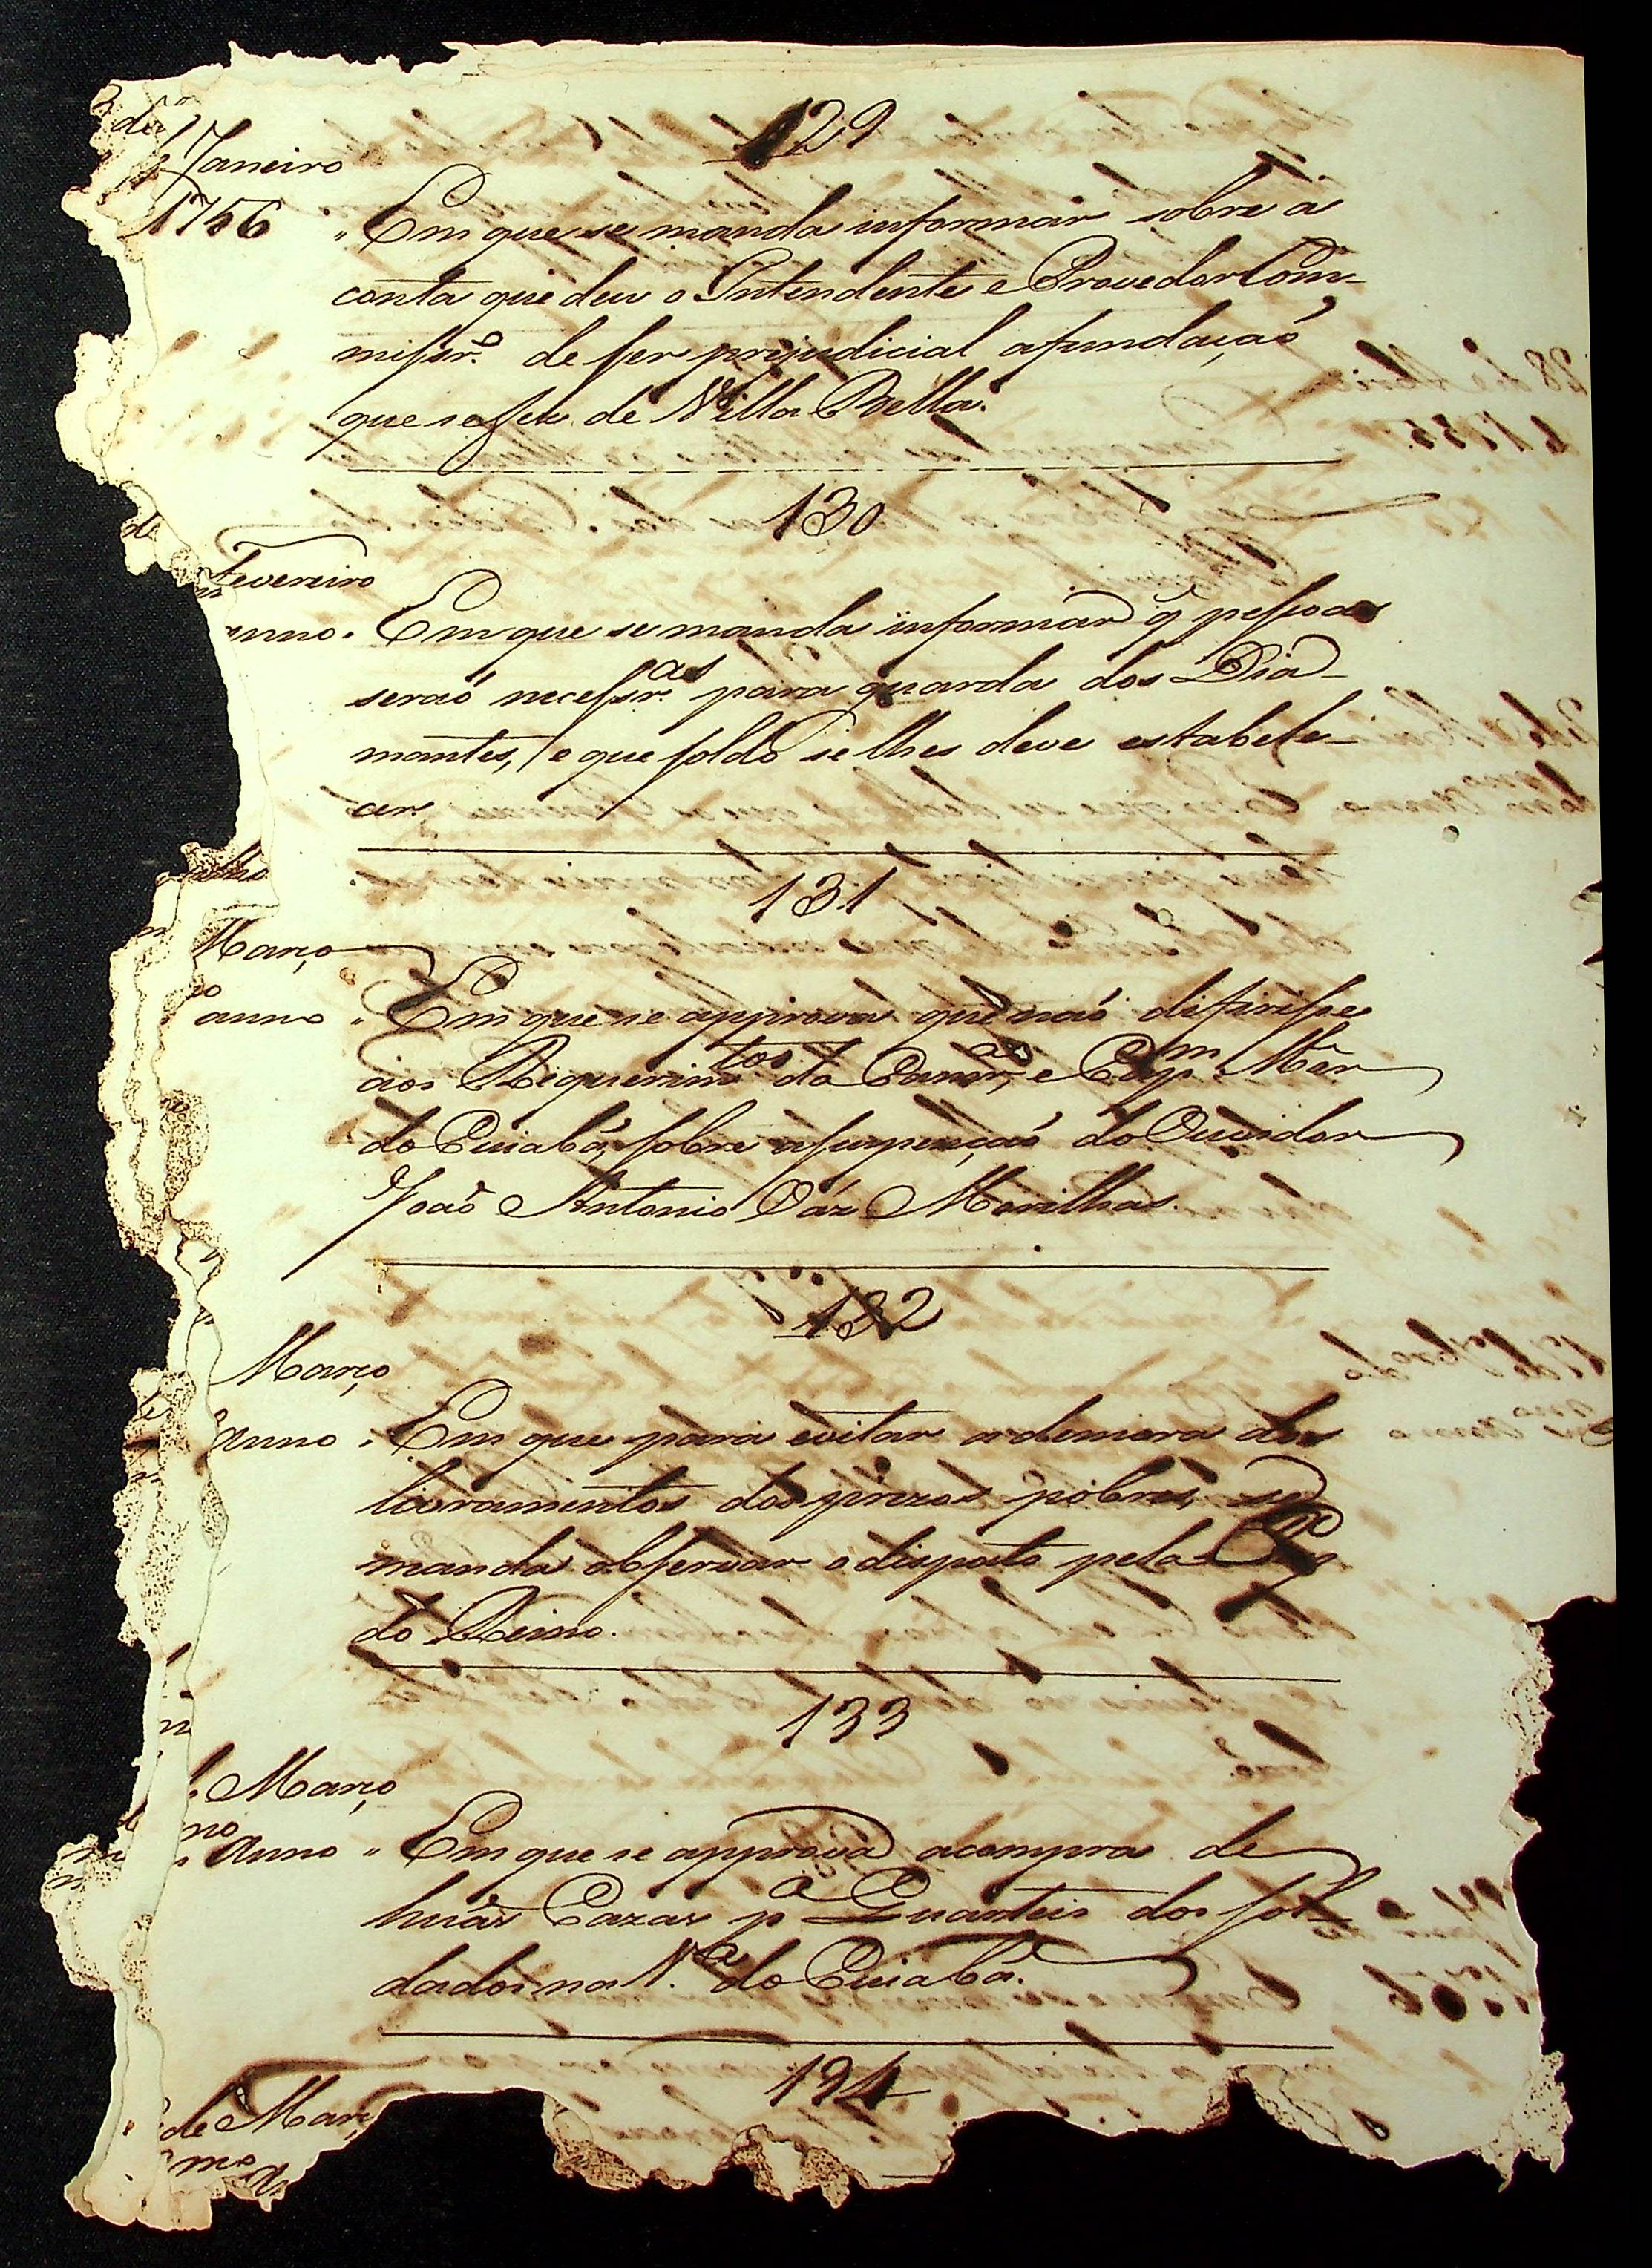 129
Janeiro
1756
Em que se manda informar sobre a
conta que deu o Intendente e Provedor Com-
missr.o de ser prejudicial a fundação
que se fez de Villa Bella.
130
Fevereiro
anno. Em que se manda informar q̃ pessoas
seraó necessr.as para guarda dos Dia-
mantes, e que soldo se lhes deve estabele-
cer.
131
Março
anno " Em que se approva que naó difirisse
aos Requerim.tos da Camr.a, e Cap.m Mór
do Cuiabá, sobre a suspençaó do Ouvidor
Joaó Antonio Váz Morilhas.
132
Março
anno " Em que para evitar a demora dos
livramentos dos prezos pobres, se
manda observar o disposto pela
do Reino.
133
Março
no
Anno " Em que se approva a compra de
huás Cazas p.a Quarteis dos sol-
dados na V.a do Cuiabá.
134
de Març
mo